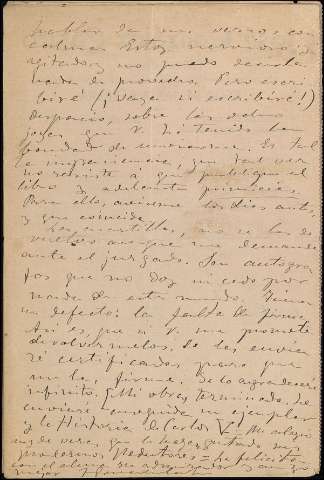 hablar de sus versos con
calma. Estoy nervioso,
agitado, y no puedo decirle
nada de provecho. Pero escri
biré (¡vaya si escribiré!)
despacio, sobre las
joyas que V. ha tenido la
bondad de enviarme. Es tal
mi impaciencia, que tal vez
no resista á que publique el
libro y adelante primicias.
Para ello, avíseme los días antes,
y que coincida.
Las cuartillas, no se las de
vuelvo aunque me demande
ante el juzgado. Son autógra
fos que no doy ni cedo por
nada de este mundo. Tienen
un defecto: la falta de firma.
Así es, que si V. me promete
devolvérmelos, se los envia
ré certificados para que
me los firme. Se lo agradeceré
infinito. Mi obra, terminada. Le
enviaré enseguida un ejemplar
y la Historia de Carlos V.
que le haya gustado
le felicita
con el alma su admirador y amigo